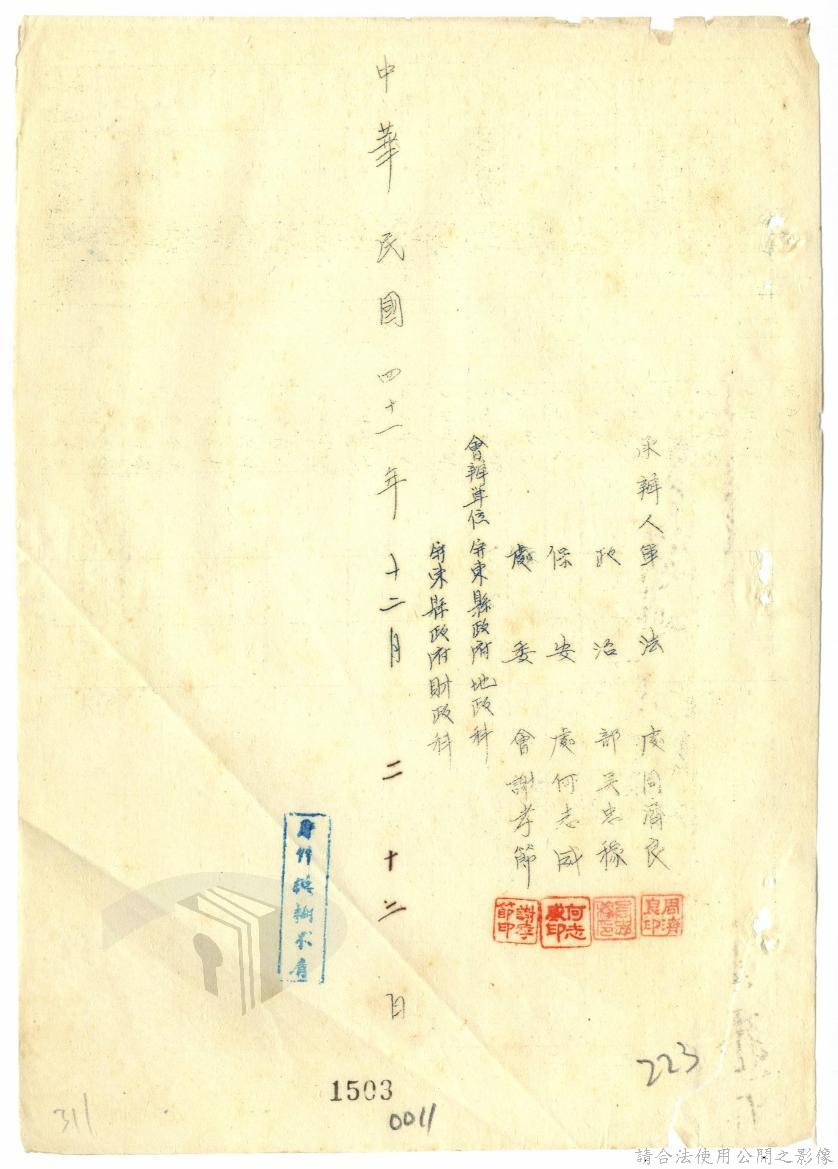 承辦人軍法處周濟良
政治部吳忠稼
保安處何志威
處委會謝孝節
會辦單位屏東縣政府地政科
屏東縣政府財政科
中華民國四十一年十二月二十二日
周濟良印
何志威印
謝孝節印
223
1503
0011
311
請合法使用公開之影像